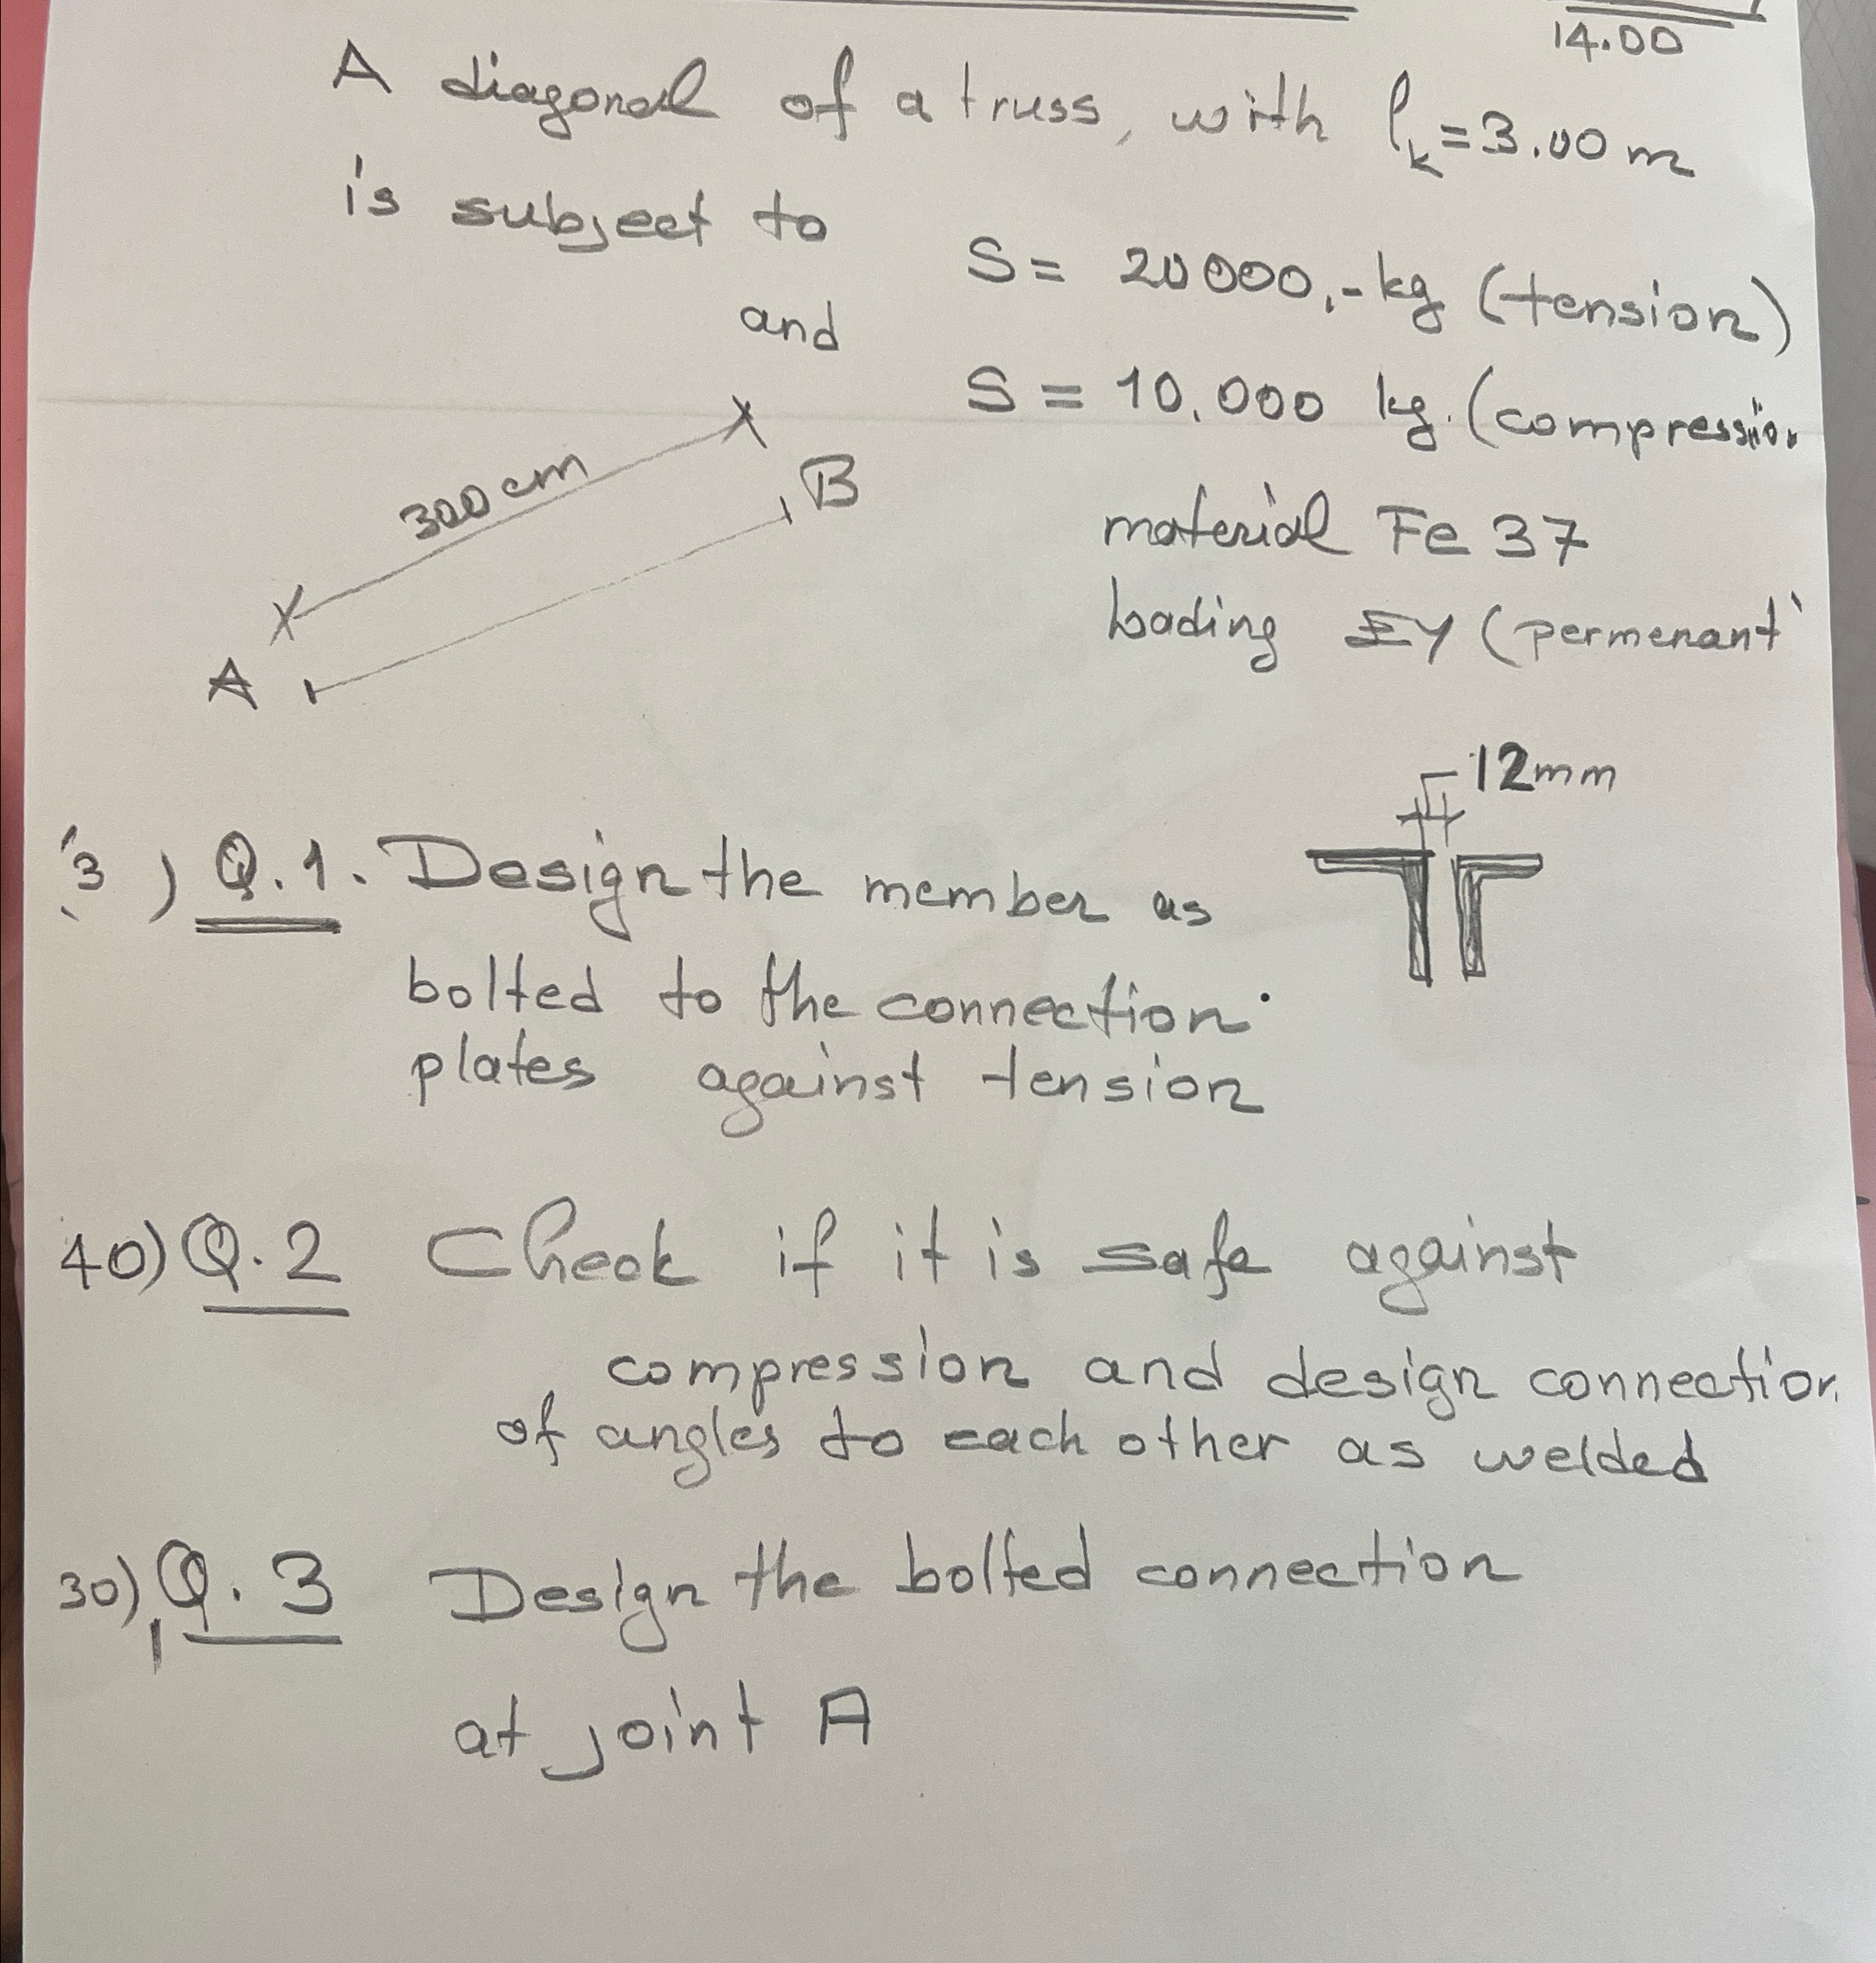 14.00
A diagonal of a truss, with lk=3.00 m
is subject to
S= 20000,- kg (tension)
and
S = 10.000 kg. (compression
300 cm
B
A
material Fe 37
loading EY (permenant
12mm
3 ) Q.1. Design the member as
bolted to the connection
plates against tension
40) Q.2 Check if it is safe against
compression and design connection
of angles to each other as welded
30) Q.3 Design the bolted connection
at joint A